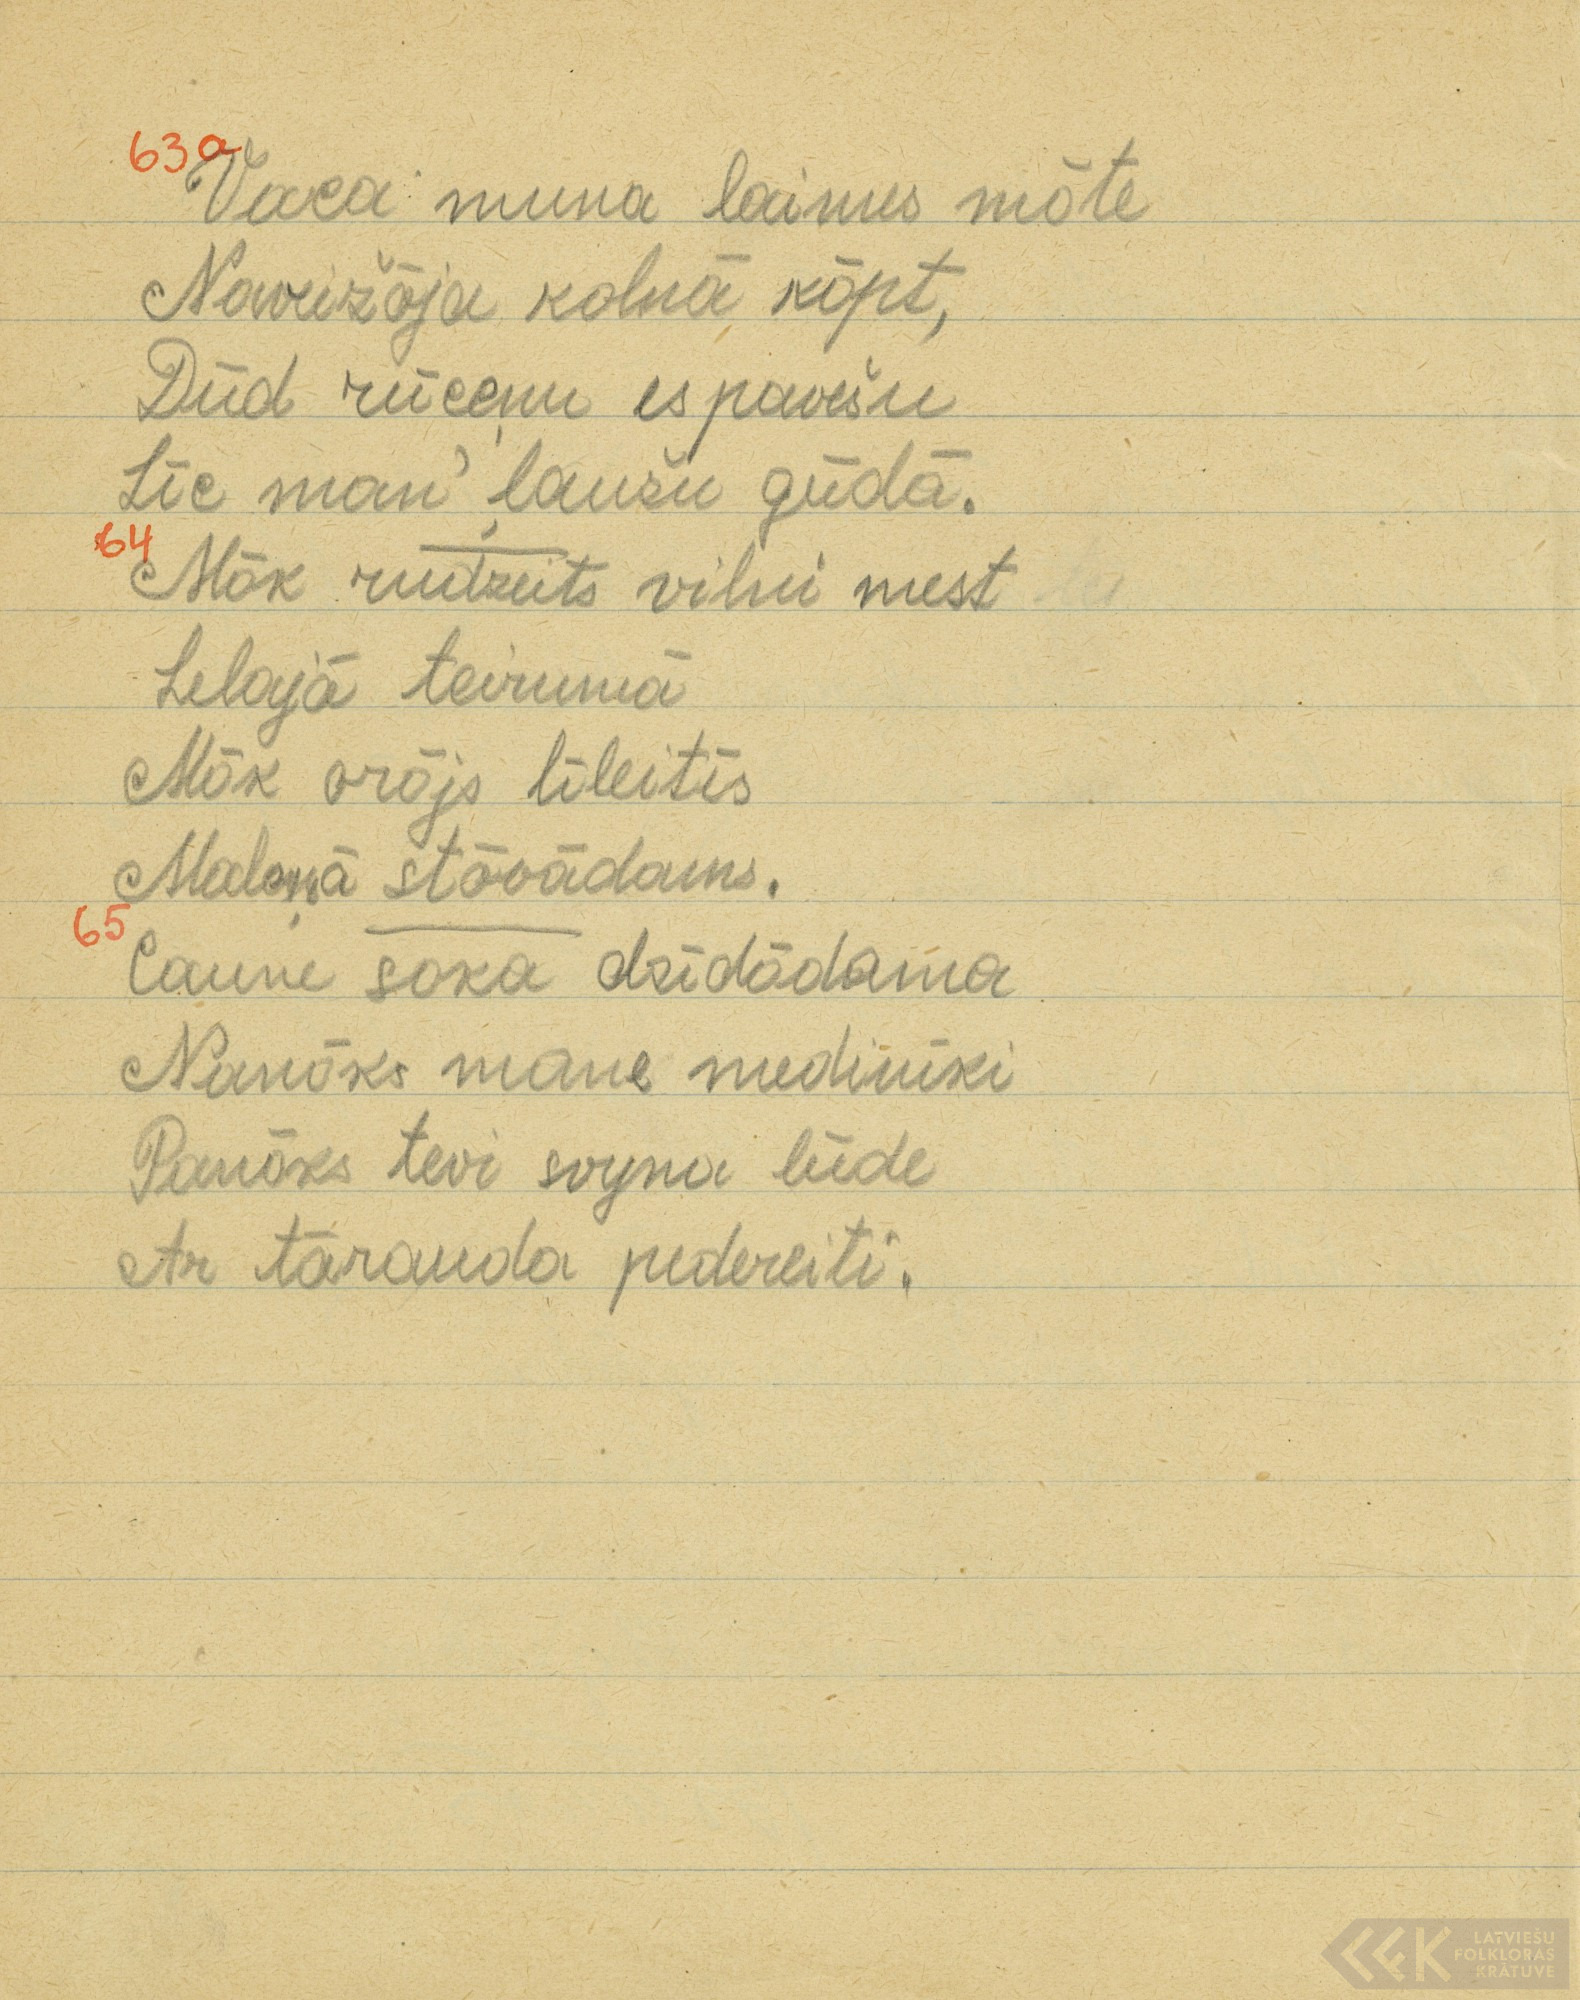 63a
Vaca muna laimes mōte
Naveižōja kolnā kōpt,
Dūd rūceņu es pavešu
Līc man' ļaužu gūdā.
64
Mōk rudzeits vilni mest
Lelajā teirumā
Mōk orōjs līleitīs
Maleņā stōvādams.
65
Caune soka dzīdōdama
Nanōks mane medinīki
Panōks tevi svyna lūde
Ar tārauda pedereiti.
LATVIEŠU
FOLKLORAS
KRĀTUVE